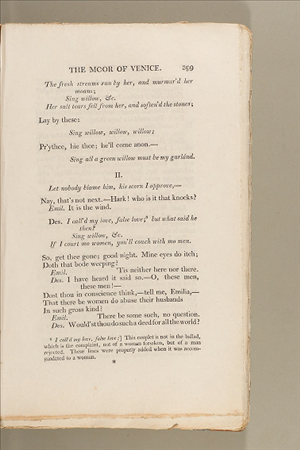 THE MOOR OF VENICE. 259
The fresh streams ran by her, and murmur'd her
moans;
Sing willow, &c.
Her salt tears fell from her, and soften'd the stones;
Lay by these:
Sing willow, willow, willow;
Pr'ythee, hie thee; he'll come anon.—
Sing all a green willow must be my garland.
II.
Let nobody blame him, his scorn I approve,—
Nay, that's not next.—Hark! who is it that knocks?
Emil. It is the wind.
Des. I call'd my love, false love;⁶ but what said he
then?
Sing willow, &c.
If I court mo women, you'll couch with mo men.
So, get thee gone; good night. Mine eyes do itch;
Doth that bode weeping?
Emil. 'Tis neither here nor there.
Des. I have heard it said so.—O, these men,
these men!—
Dost thou in conscience think,—tell me, Emilia,—
That there be women do abuse their husbands
In such gross kind?
Emil. There be some such, no question.
Des. Would'st thou do such a deed for all the world?
⁶ I call'd my love, false love;] This couplet is not in the ballad,
which is the complaint, not of a woman forsaken, but of a man
rejected. These lines were properly added when it was accom-
modated to a woman.